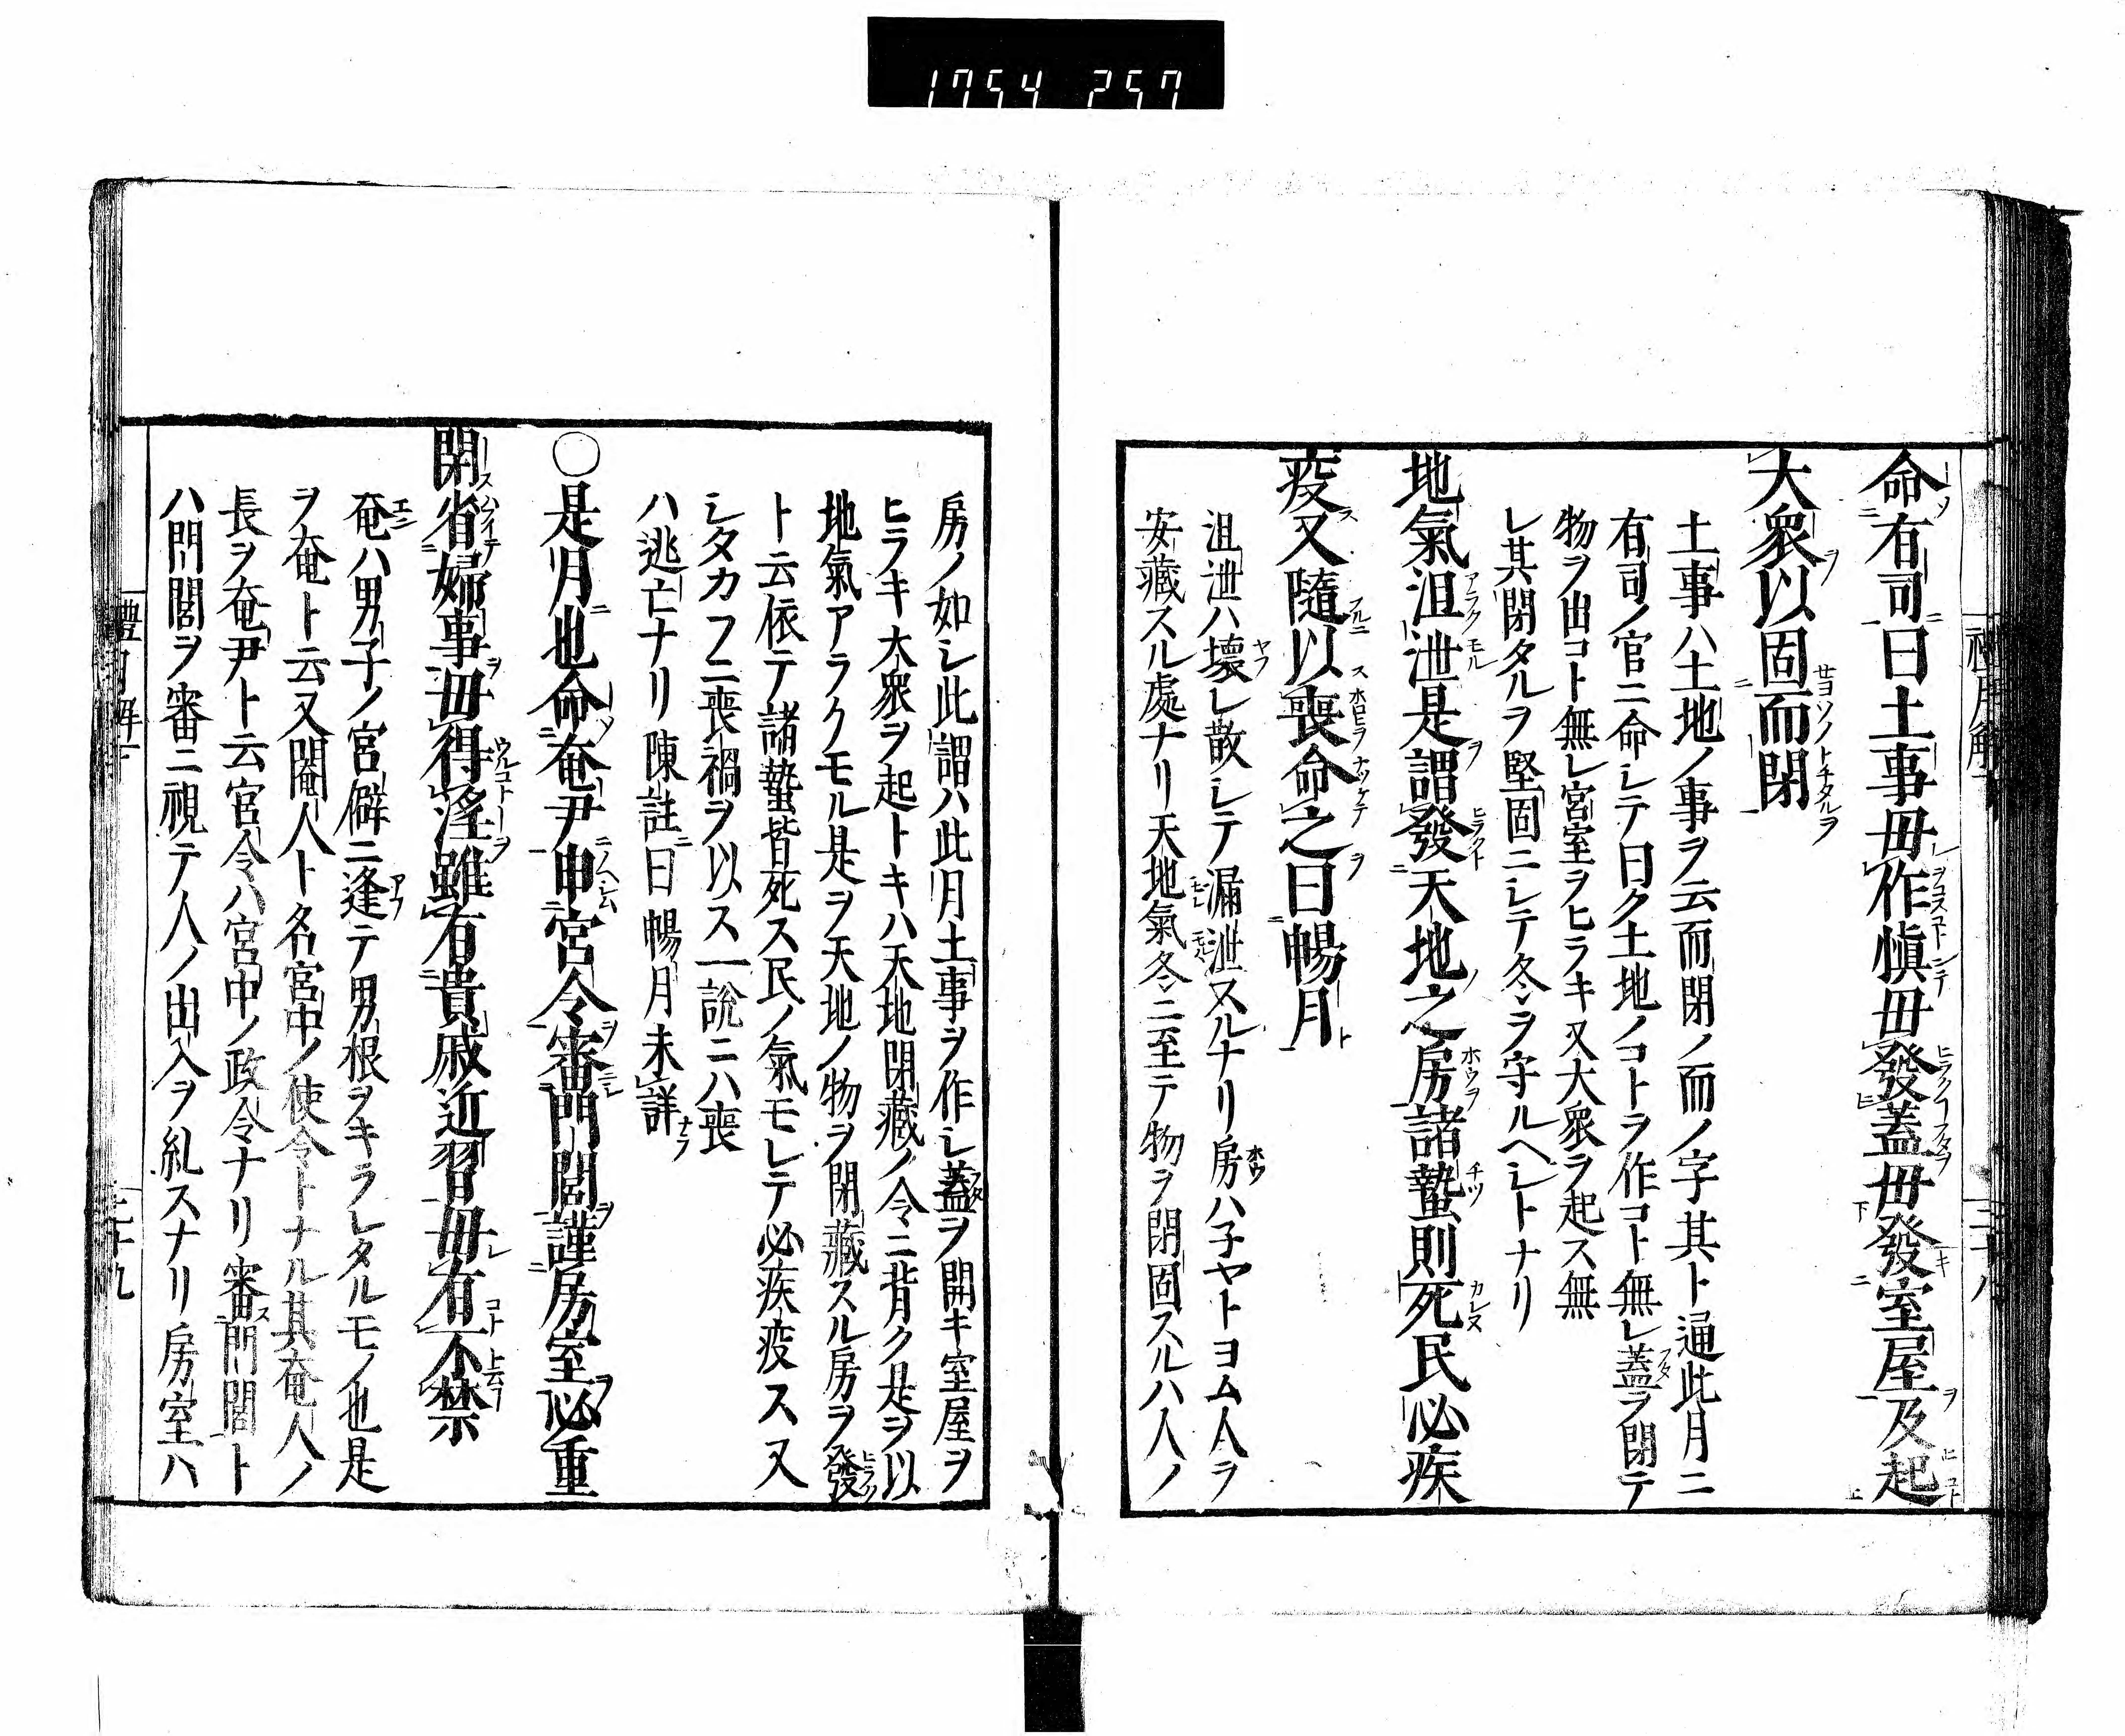 1754 257
命有司曰土事毋作愼毋發蓋毋發室屋及起
大衆以固而閉
土事ハ土地ノ事ヲ云而閉ノ而ノ字其ト通此月ニ
有司ノ官ニ命シテ曰ク土地ノコトヲ作コト無レ蓋ヲ閉テ
物ヲ出コト無レ宮室ヲヒラキ又大衆ヲ起ス無
レ其閉タルヲ堅固ニシテ冬ヲ守ルヘシトナリ
地氣沮泄是謂發天地之房諸蟄則死民必疾
疫又隨以喪命之曰暢月
沮泄ハ壞レ散シテ漏泄スルナリ房ハ子ヤトヨム人ヲ
安藏スル處ナリ天地氣冬ニ至テ物ヲ閉固スルハ人ノ
房ノ如シ此謂ハ此月土事ヲ作シ蓋ヲ開キ室屋ヲ
ヒラキ大衆ヲ起トキハ天地閉藏ノ令ニ背ク是ヲ以
地氣アラクモル是ヲ天地ノ物ヲ閉藏スル房ヲ發
ト云依テ諸蟄皆死ス民ノ氣モレテ必疾疫ス又
シタカフニ喪禍ヲ以ス一說ニハ喪
ハ逃亡ナリ陳註曰暢月未詳
○是月也命奄尹申宮令審門閭謹房室必重
閉省婦事毋得淫雖有貴戚近習毋有不禁
奄ハ男子ノ宮僻ニ逢テ男根ヲキラレタルモノ也是
ヲ奄ト云又閹人ト名宮中ノ使令トナル其奄人ノ
長ヲ奄尹ト云宮令ハ宮中ノ政令ナリ審門閭ト
ハ門閭ヲ審ニ視テ人ノ出入ヲ糺スナリ房室ハ